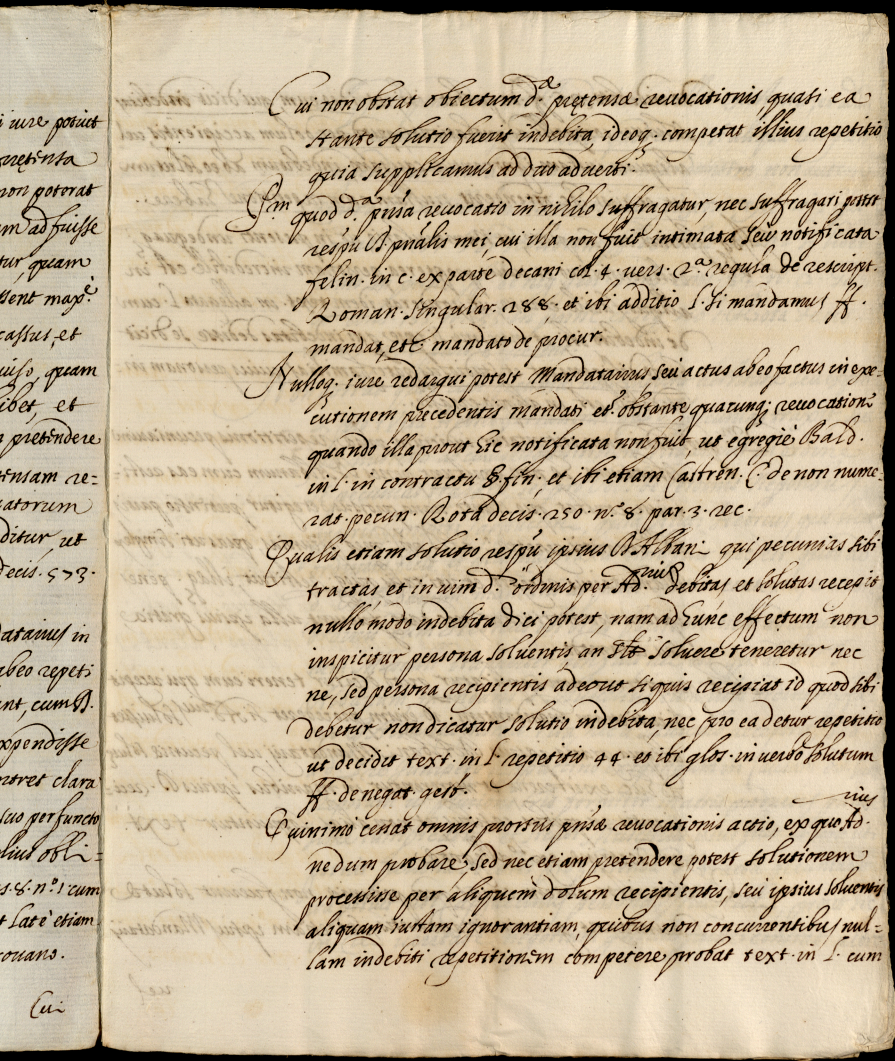 i iure potuit
prętensa
non poterat
um adfuisse
tur, quam
ssent maxe.
cassus, et
quam
libet, et
pretendere
tensam re=
gatorum
ditur, ut
decis. 573.
datarius in
abeo repeti
int, cum D.
expendisse
ntret clara
suo perfuncto
obli=
s. 8. no. 1 cum
t Latè etiam
Cui
Cui non obstat obiectum da. prętensæ revocationis, quasi ea
stante solutio fuerit indebita, ideoq. competat illius repetitio
quia supplicamus ad duo adverti.
Pm quod da. pnsa revocatio in nihilo suffragatur, nec suffragari potest
respu D. pnalis mei, cui illa non fuit intimata seu notificata
felin. in c. ex parte decani col. 4. vers. 2a. regula de rescript.
Roman. singular. 288. et ibi additio l. si mandamus ff.
mandat, etc. mandato de procur.
Nulloq. iure redargui potest Mandatarius seu actus abeo factus in exe=
cutionem precedentis mandati et. obstante quacunq; revocatione
quando illa prout hic notificata non fuit, ut egregiè Bald.
in l. in contractu § fin. et ibi etiam Castren. C. de non nume=
rat. pecun. Rota decis. 250. no. 8. par. 3. rec.
Qualis etiam solutio respu ipsius D. Albani qui pecunias sibi
tractas et in vim d. ordinis per Ad.rius debitas et solutas recepit
nullo modo indebita dici potest, nam ad hunc effectum non
inspicitur persona solventis, an solvere teneretur nec
ne, sed persona recipientis adeo ut si quis recipiat id quod sibi
debetur non dicatur solutio indebita, nec pro ea detur repetitio
ut decidit text. in l. repetitio 44. et ibi glos. in verbo solutum
ff. de negat. gest.
Quinimo cessat omnis prorsus pnsæ revocationis actio, ex quo Ad.rius
nedum probare, sed nec etiam pretendere potest solutionem
processisse per aliquem dolum recipientis, seu ipsius solventis
aliquam iustam ignorantiam, quibus non concurrentibus nul=
lam indebiti repetitionem competere probat text. in l. cum